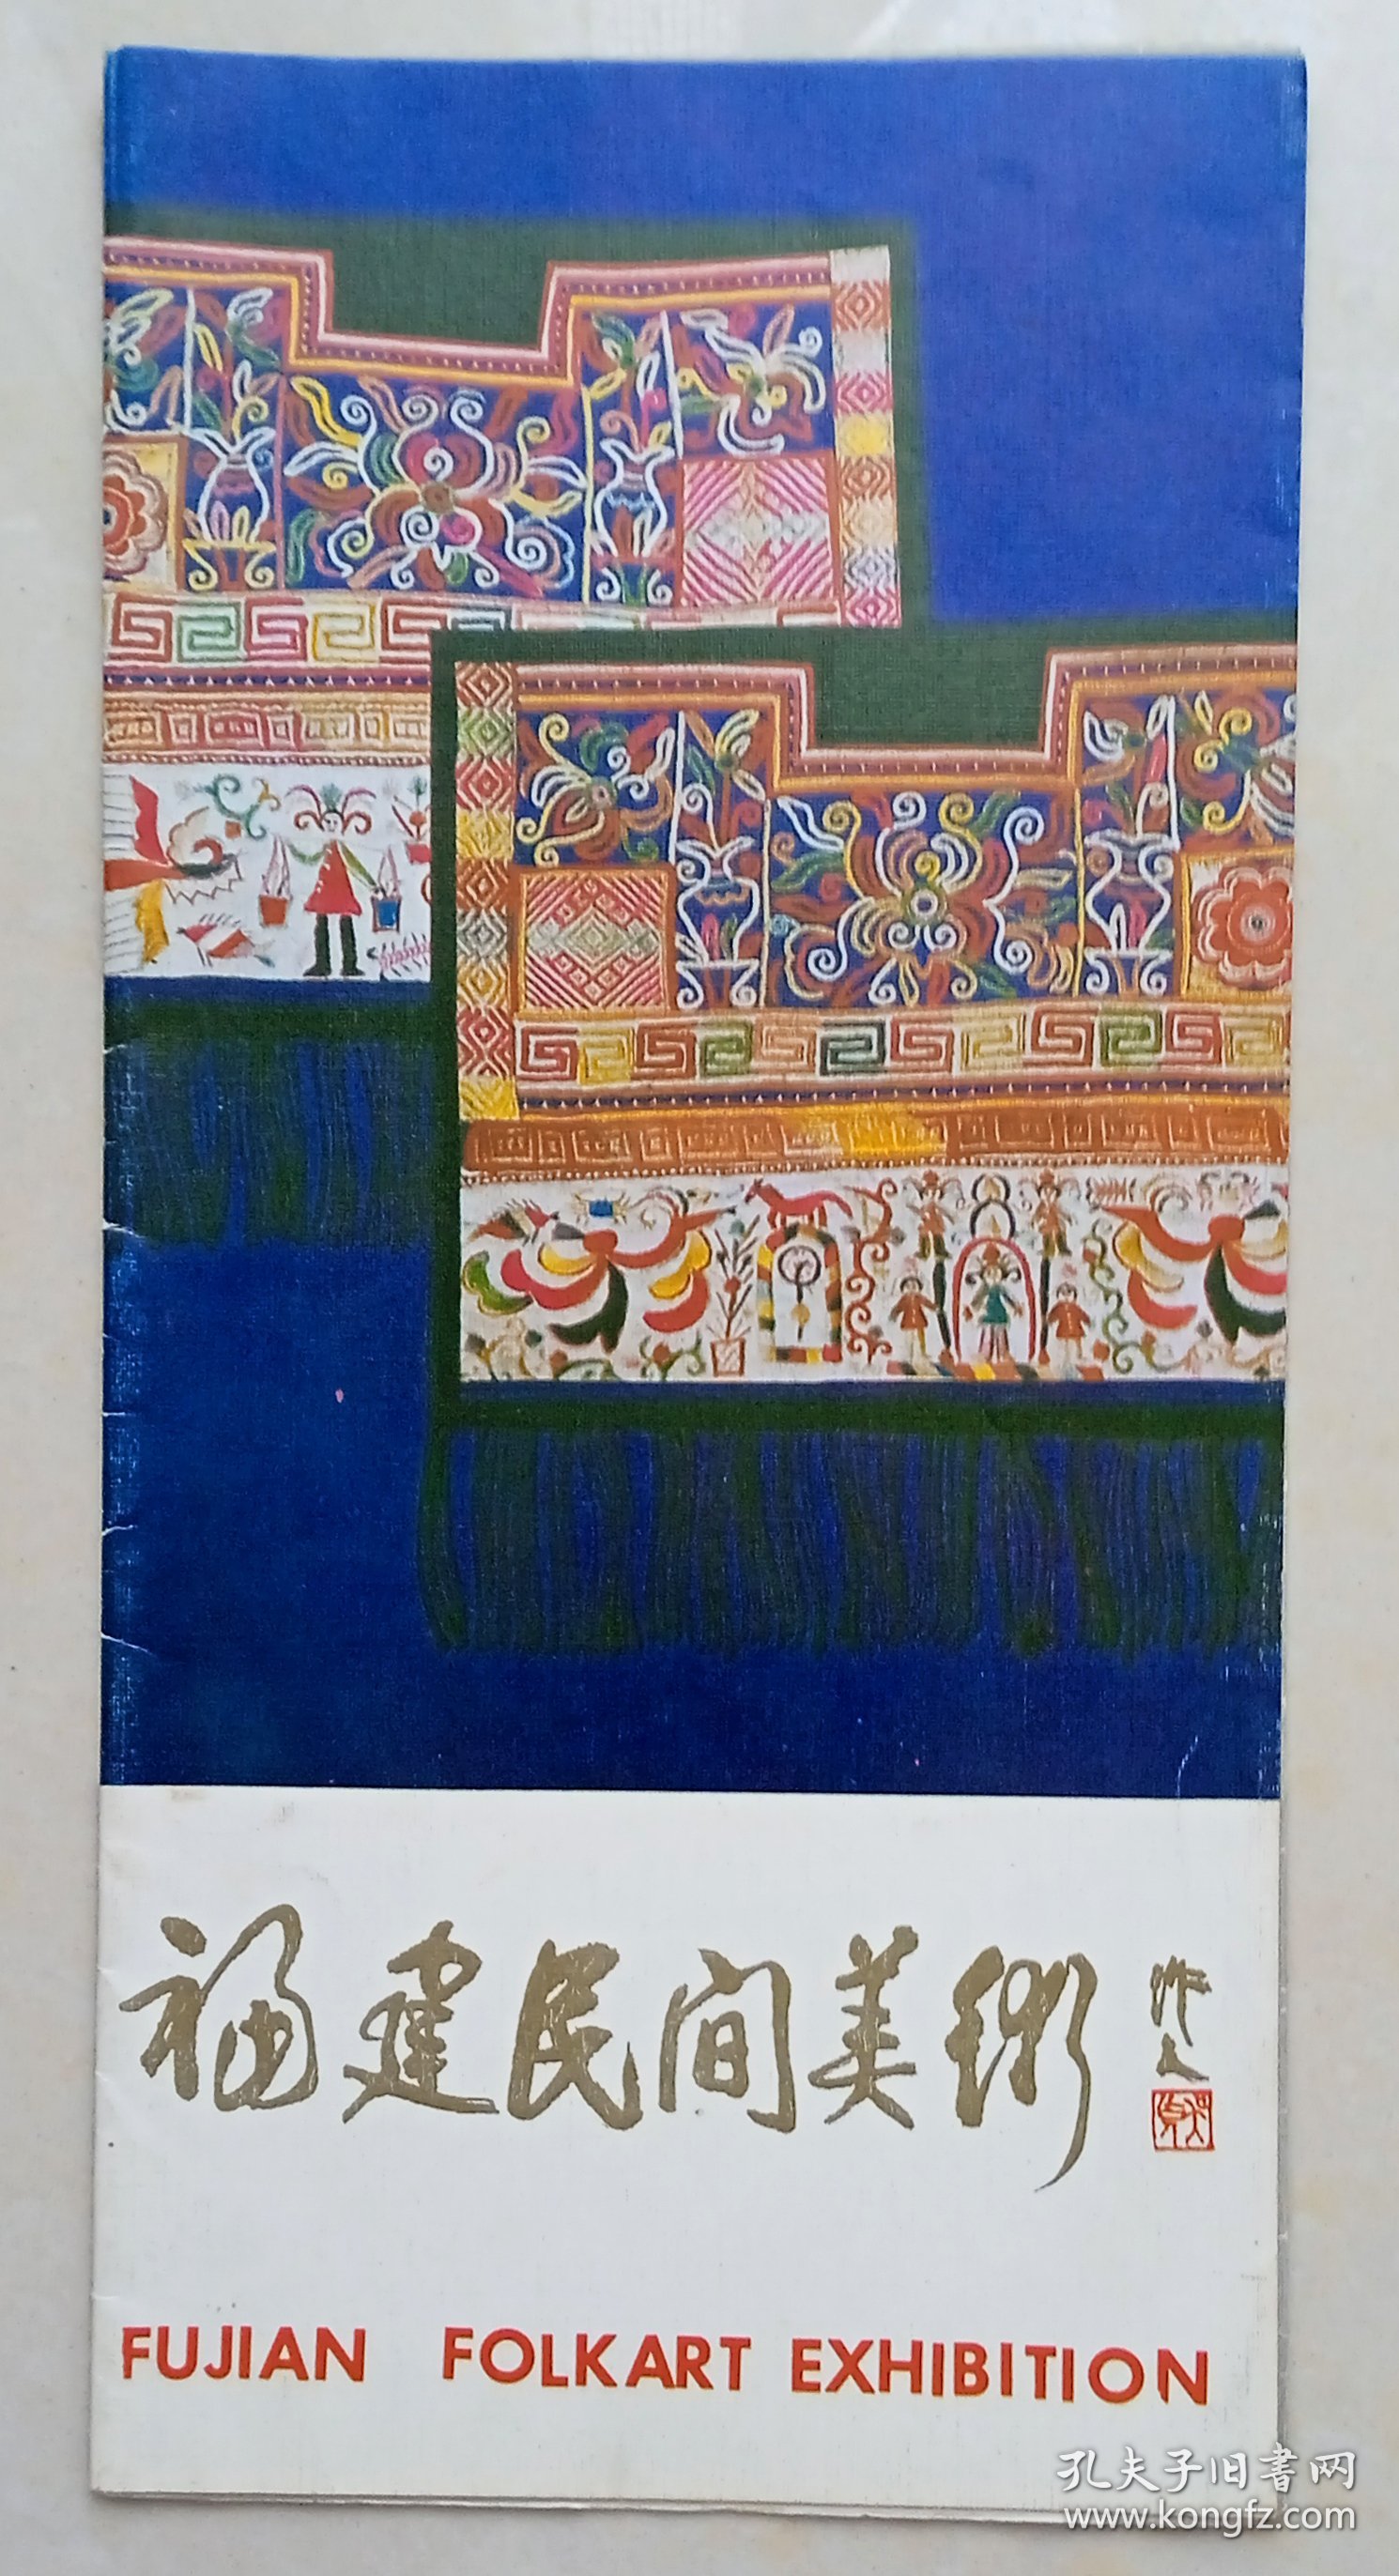 福建民间美術
作人
FUJIAN FOLKART EXHIBITION
孔夫子旧書网
www.kongfz.com